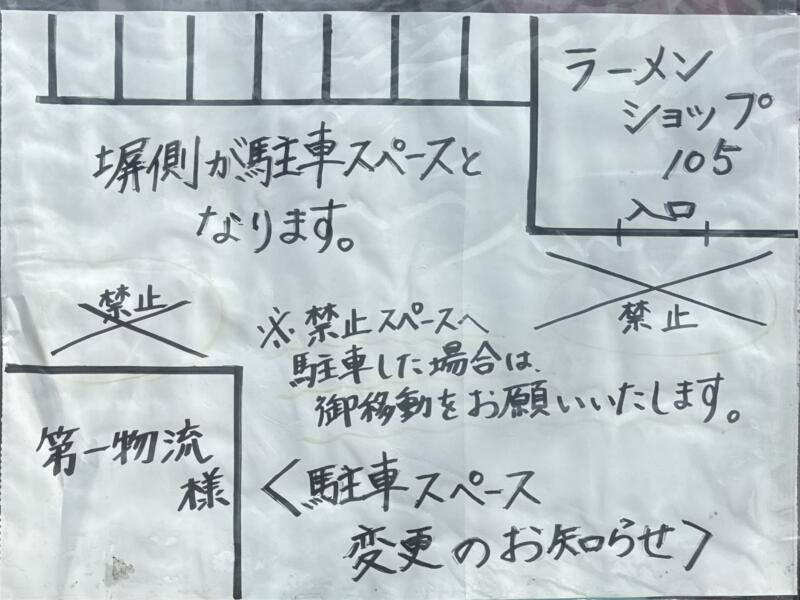 ラーメン
ショップ
105
入口
塀側が駐車スペースと
なります。
禁止
禁止
※禁止スペースへ
駐車した場合は、
御移動をお願いいたします。
第一物流
様
〈駐車スペース
変更のお知らせ〉